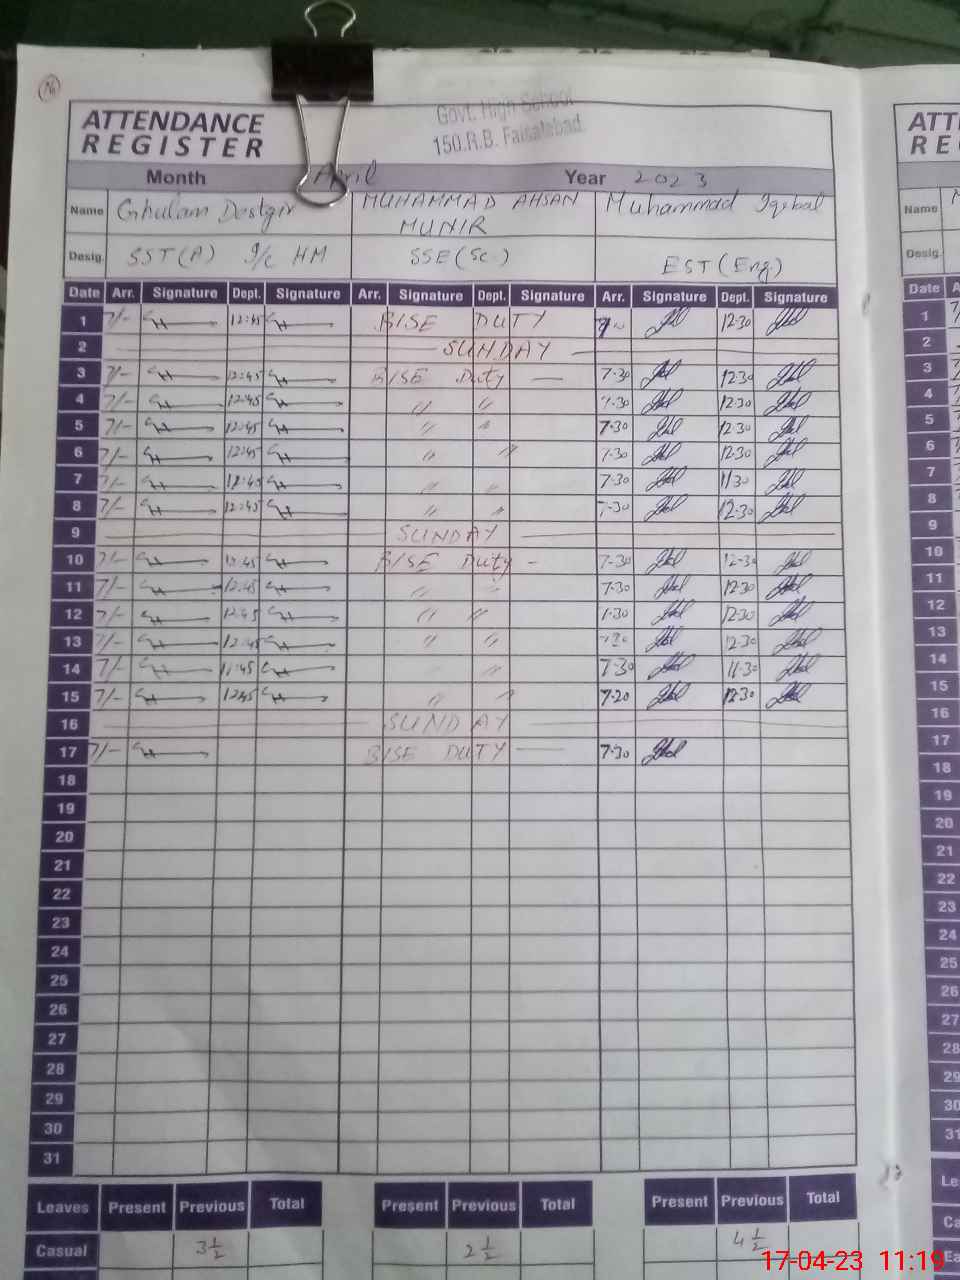 Govt. High School
150.R.B. Faisalabad
ATTENDANCE
REGISTER
Month April Year 2023
Name Ghulam Dastgir MUHAMMAD AHSAN MUNIR Muhammad Iqbal
Desig. SST(A) I/C HM SSE(Sc.) EST(Eng.)
Date Arr. Signature Dept. Signature Arr. Signature Dept. Signature Arr. Signature Dept. Signature
1 7/- 12:45 BISE DUTY 12:30
2 SUNDAY
3 7/- 12:45 BISE Duty 7:30 12:30
4 7/- 12:45 " " 7:30 12:30
5 7/- 12:45 " " 7:30 12:30
6 7/- 12:45 " " 7:30 12:30
7 7/- 11:45 " " 7:30 11:30
8 7/- 12:45 " " 7:30 12:30
9 SUNDAY
10 7/- 12:45 BISE Duty 7:30 12:30
11 7/- 12:45 " " 7:30 12:30
12 7/- 12:45 " " 7:30 12:30
13 7/- 12:45 " " 7:30 12:30
14 7/- 11:45 " 7:30 11:30
15 7/- 12:45 " " 7:20 12:30
16 SUNDAY
17 7/- BISE DUTY 7:30
18
19
20
21
22
23
24
25
26
27
28
29
30
31
Leaves Present Previous Total Present Previous Total Present Previous Total
Casual 3 1/2 2 1/2 4 1/2
17-04-23 11:19
ATT
RE
Name
Desig.
Date A
1
2
3
4
5
6
7
8
9
10
11
12
13
14
15
16
17
18
19
20
21
22
23
24
25
26
27
28
29
30
31
Le
Ca
Ea